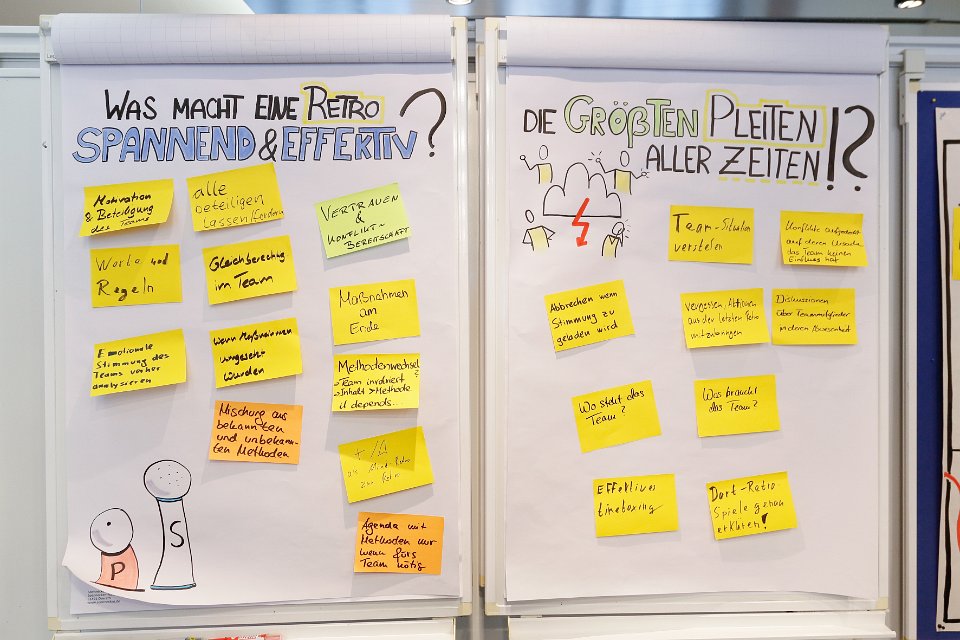 WAS MACHT EINE RETRO
SPANNEND & EFFEKTIV ?
Motivation
& Beteiligung
des Teams
alle
beteiligen
lassen/fordern
VERTRAUEN
&
KONFLIKT-
BEREITSCHAFT
Worte und
Regeln
Gleichberechtig
im Team
Maßnahmen
am
Ende
Emotionale
Stimmung des
Teams vorher
analysieren
wenn Maßnahmen
umgesetzt
wurden
Methodenwechsel?
→ Team involviert
→ Inhalt > Methode
it depends...
Mischung aus
bekannten
und unbekann-
ten Methoden
Retro
Agenda mit
Methoden nur
wenn fürs
Team nötig
P
S
DIE GRÖßTEN PLEITEN
ALLER ZEITEN !?
Team-Situation
verstehen
Konflikte aufgedeckt
auf deren Ursache
das Team keinen
Einfluss hat
Abbrechen wenn
Stimmung zu
geladen wird
Vergessen, Aktionen
aus der letzten Retro
mitzubringen
Diskussionen
über Teammitglieder
in deren Abwesenheit
Wo steht das
Team?
Was braucht
das Team?
Effektives
timeboxing
Dort-Retro-
Spiele genau
erklären!